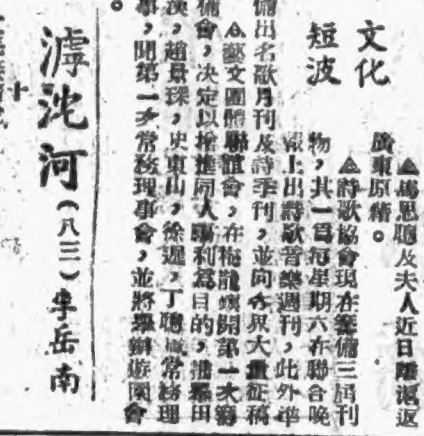 文化
短波
▲馬思聰及夫人近日離滬返
廣東原籍。
▲詩歌協會現在籌備三刊
物,其一爲每星期六在聯合晚
報上出詩歌音樂週刊,此外準
備出名歌月刊及詩季刊,並向各界大量征稿
▲藝文團體聯誼會,在梅龍鎮開第一次籌
備會,决定以同人福利爲目的,推舉田
漢,趙景琛,史東山,徐遲,丁聰常務理
事,聞第一次常務理事會,並將舉辦遊園會
。
滹沱河(八三)李岳南
十